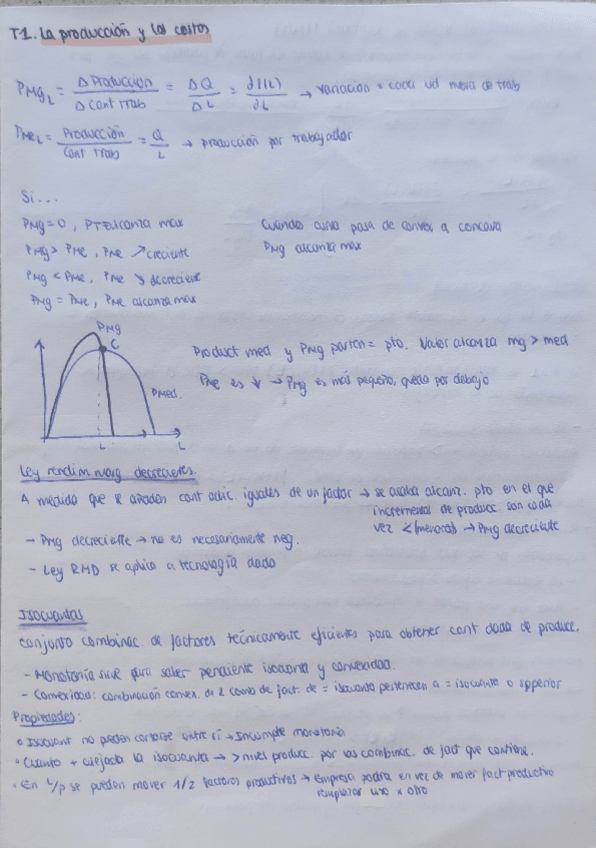 T.1. La producción y los costos
PMgL = Δ Producción / Δ Cant Trab = ΔQ / ΔL = ∂f(L) / ∂L → variación x cada ud nueva de trab
PMeL = Producción / Cant Trab = Q / L → producción por trabajador
Si...
PMg = 0, PT alcanza max
Cuando curva pasa de convex a concava
PMg alcanza max
PMg > PMe, PMe ↗ creciente
PMg < PMe, PMe ↘ decreciente
PMg = PMe, PMe alcanza max
PMg
C
PMed.
L
L
Product med y PMg parten = pto. Valor alcanza mg > med
PMe es ↓ → PMg es más pequeño, queda por debajo
Ley rendim marg decrecientes.
A medida que se añaden cant adic. iguales de un factor → se acaba alcanz. pto en el que
incrementos de producc. son cada
vez < (menores) → PMg decreciente
- PMg decreciente → no es necesariamente neg.
- Ley RMD se aplica a tecnología dada
Isocuantas
Conjunto combinac. de factores técnicamente eficientes para obtener cant dada de producc.
- Monotonía sirve para saber pendiente isocuanta y convexidad.
- Convexidad: combinación convex. de 2 comb de fact. de = isocuanta pertenecen a = isocuanta o superior
Propiedades:
• Isocuant no pueden cortarse entre sí → Incumple monotonía
• Cuanto + alejada la isocuanta → > nivel producc. por las combinac. de fact que contiene.
• En L/p se pueden mover 1/2 factores productivos → Empresa podría en vez de mover fact productivo
remplazar uno x otro